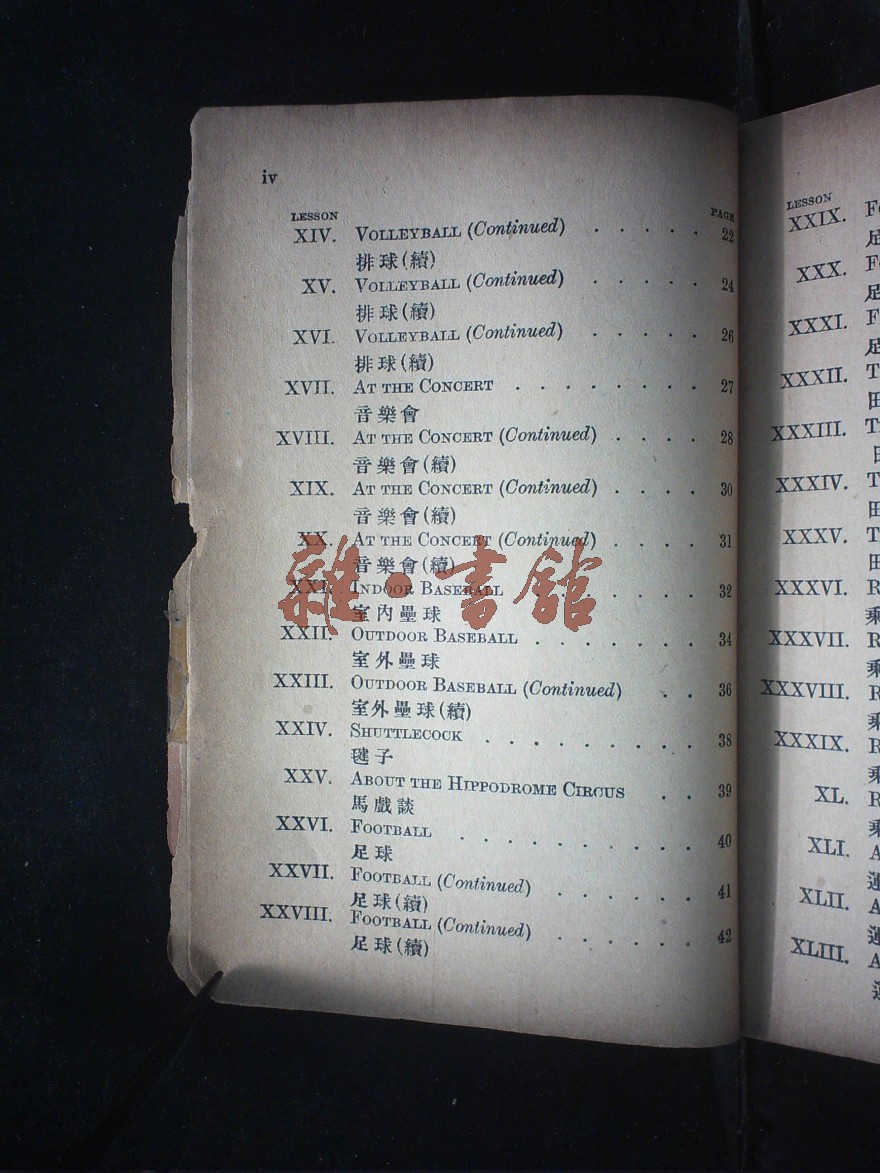 iv
LESSON PAGE
XIV. VOLLEYBALL (Continued) . . . . . 22
排球(續)
XV. VOLLEYBALL (Continued) . . . . . 24
排球(續)
XVI. VOLLEYBALL (Continued) . . . . . 26
排球(續)
XVII. AT THE CONCERT . . . . . . . . 27
音樂會
XVIII. AT THE CONCERT (Continued) . . . . 28
音樂會(續)
XIX. AT THE CONCERT (Continued) . . . . 30
音樂會(續)
XX. AT THE CONCERT (Continued) . . . . 31
音樂會(續)
XXI. INDOOR BASEBALL . . . . . . . 32
室內壘球
XXII. OUTDOOR BASEBALL . . . . . . . 34
室外壘球
XXIII. OUTDOOR BASEBALL (Continued) . . 36
室外壘球(續)
XXIV. SHUTTLECOCK . . . . . . . . . 38
毽子
XXV. ABOUT THE HIPPODROME CIRCUS . . 39
馬戲談
XXVI. FOOTBALL . . . . . . . . . . 40
足球
XXVII. FOOTBALL (Continued) . . . . . . 41
足球(續)
XXVIII. FOOTBALL (Continued) . . . . . . 42
足球(續)
雜·書館
LESSON
XXIX.
足
XXX.
足
XXXI. F
足
XXXII. T
田
XXXIII. T
田
XXXIV. T
田
XXXV. T
田
XXXVI. R
乘
XXXVII. R
乘
XXXVIII. R
乘
XXXIX. R
乘
XL. R
乘
XLI. A
運
XLII. A
運
XLIII. A